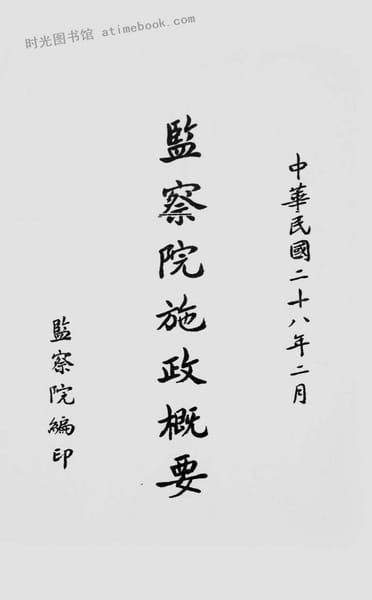 时光图书馆 atimebook.com
中華民國二十八年二月
監察院施政概要
監察院編印